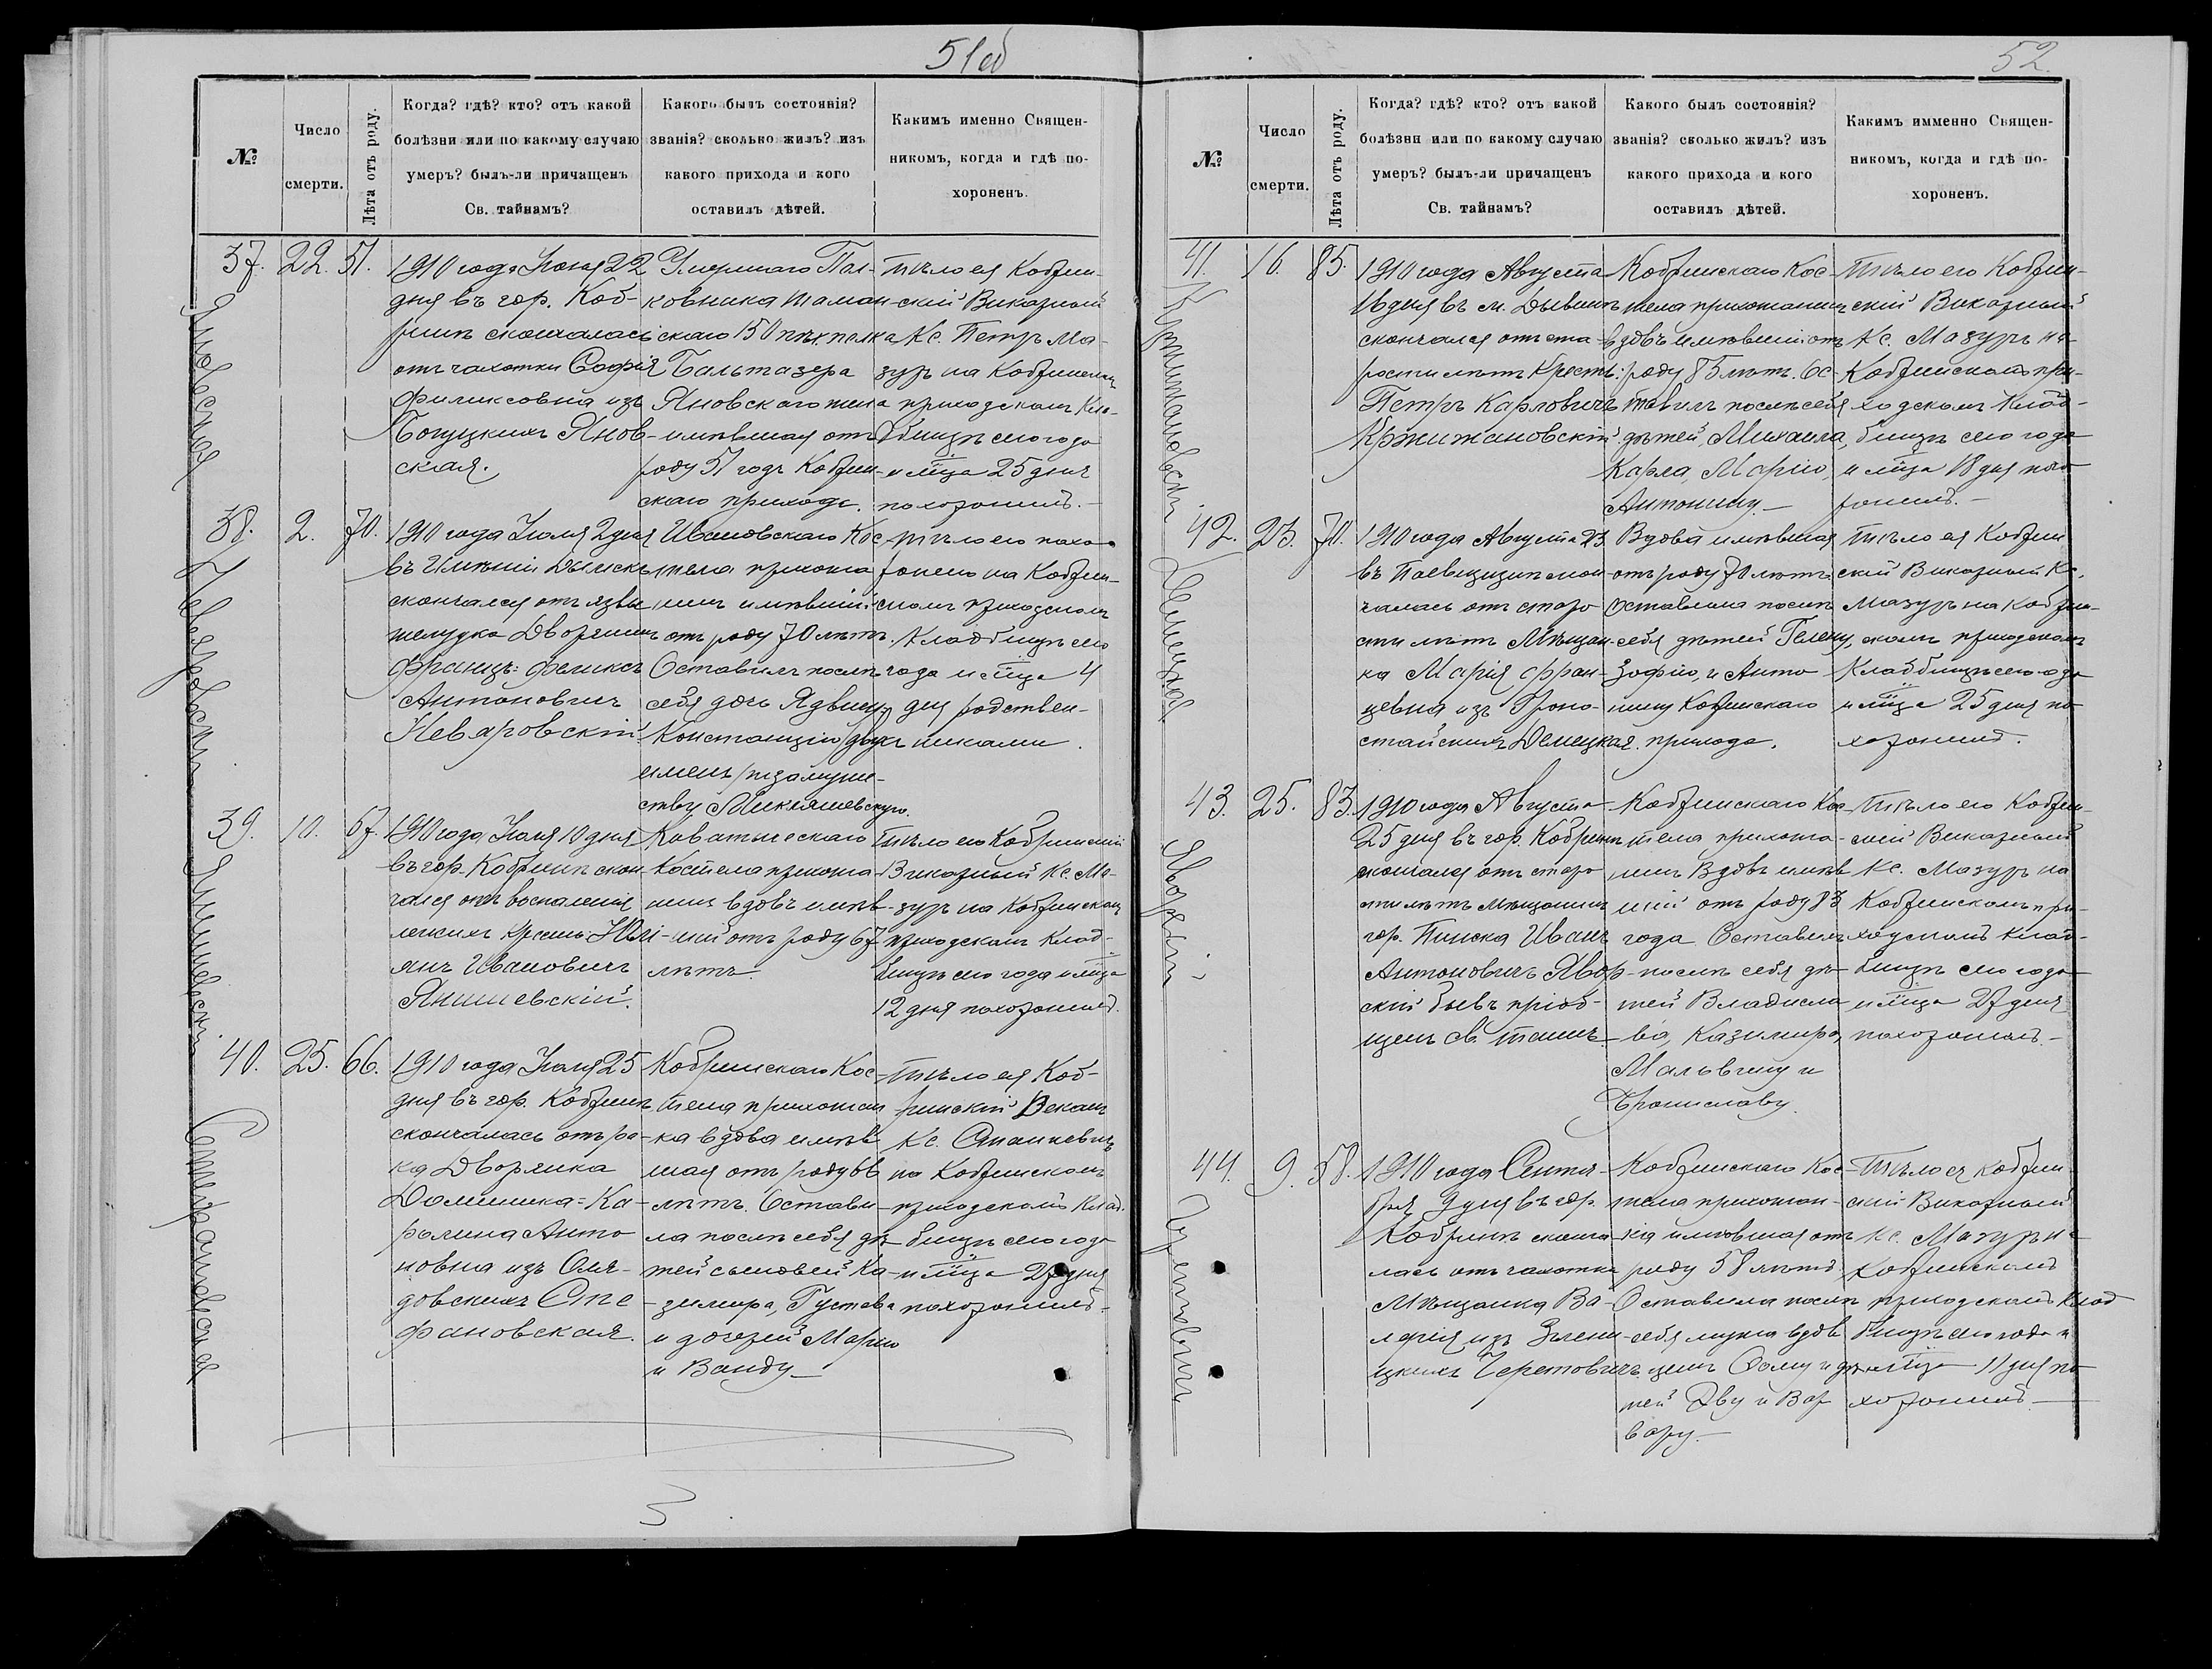 51об
№
Число
смерти.
Лѣта отъ роду.
Когда? гдѣ? кто? отъ какой
болѣзни или по какому случаю
умеръ? былъ-ли причащенъ
Св. тайнамъ?
Какого былъ состоянія?
званія? сколько жилъ? изъ
какого прихода и кого
оставилъ дѣтей.
Какимъ именно Священ-
никомъ, когда и гдѣ по-
хороненъ.
Яновская
37.
22.
51.
1910 года Іюня 22
дня въ гор. Коб-
ринѣ скончалась
отъ чахотки Софія
Феликсовна изъ
Богуцкихъ Янов-
ская.
Умершаго Пол-
ковника Таман-
скаго 150 пѣх. полка
Бальтазера
Яновскаго жена
имѣвшая отъ
роду 51 годъ Кобрин-
скаго прихода.
Тѣло ея Кобрин-
скій Викарный
Кс. Петръ Ма-
зуръ на Кобринскомъ
приходскомъ Кла-
дбищѣ сего года
и мѣца 25 дня
похоронилъ.
Невяровскій
38.
2.
70.
1910 года Іюля 2 дня
въ Имѣніи
скончался отъ язвы
желудка Дворянинъ
Францъ-Феликсъ
Антоновичъ
Невяровскій.
Ивановскаго Кос-
тела прихожа-
нинъ имѣвшій
отъ роду 70 лѣтъ.
Оставилъ послѣ
себя дочь Ядвигу
Констанцію (двухъ
именъ) по замуже-
ству
Тѣло его похо-
ронено на Кобрин-
скомъ приходскомъ
Кладбищѣ сего
года и мѣца 4
дня родствен-
никами.
Янишевскій
39.
10.
67.
1910 года Іюля 10 дня
въ гор. Кобринѣ скон-
чался отъ воспаленія
легкихъ крест. Юлі-
янъ Ивановичъ
Янишевскій.
Костела прихожа-
нинъ вдовъ имѣв-
шій отъ роду 67
лѣтъ.
Тѣло его Кобринскій
Викарный Кс. Ма-
зуръ на Кобринскомъ
приходскомъ Клад-
бищѣ сего года и мѣца
12 дня похоронилъ.
Стефановская
40.
25.
66.
1910 года Іюля 25
дня въ гор. Кобринѣ
скончалась отъ ра-
ка Дворянка
Доминика-Ка-
ролина Анто-
новна изъ Оля-
довскихъ Сте-
фановская.
Кобринскаго Кос-
тела прихожан-
ка вдова имѣв-
шая отъ роду 66
лѣтъ. Остави-
ла послѣ себя дѣ-
тей сыновей Ка-
зимира, Густава
и дочерей Марію
и Ванду
Тѣло ея Коб-
ринскій Деканъ
Кс.
на Кобринскомъ
приходскомъ Клад-
бищѣ сего года
и мѣца 27 дня
похоронилъ.
52.
№
Число
смерти.
Лѣта отъ роду.
Когда? гдѣ? кто? отъ какой
болѣзни или по какому случаю
умеръ? былъ-ли причащенъ
Св. тайнамъ?
Какого былъ состоянія?
званія? сколько жилъ? изъ
какого прихода и кого
оставилъ дѣтей.
Какимъ имменно Священ-
никомъ, когда и гдѣ по-
хороненъ.
Кржижановскій
41.
16.
85.
1910 года Августа
16 дня въ м. Дывинѣ
скончался отъ ста-
рости лѣтъ Крест.
Петръ Карловичъ
Кржижановскій
Кобринскаго Кос-
тела прихожанинъ
вдовъ имѣвшій отъ
роду 85 лѣтъ. Ос-
тавилъ послѣ себя
дѣтей, Михаила,
Карла, Марію,
Антонину.
Тѣло его Кобрин-
скій Викарный
Кс. Мазуръ на
Кобринскомъ при-
ходскомъ Клад-
бищѣ сего года
и мѣца 18 дня похо-
ронилъ.
42.
23.
70.
1910 года Августа 23
въ скон-
чалась отъ старо-
сти лѣтъ Мѣщан-
ка Марія Фран-
цевна изъ Гроно-
стайскихъ
Вдова имѣвшая
отъ роду 70 лѣтъ
Оставила послѣ
себя дѣтей Гелену,
Зофію, и Анто-
нину Кобринскаго
прихода.
Тѣло ея Кобрин-
скій Викарный Кс.
Мазуръ на Кобрин-
скомъ приходскомъ
Кладбищѣ сего года
и мѣца 25 дня по-
хоронилъ.
Яворскій
43.
25.
83.
1910 года Августа
25 дня въ гор. Кобринѣ
скончался отъ старо-
сти лѣтъ мѣщанинъ
гор. Пинска Иванъ
Антоновичъ Явор-
скій бывъ пріоб-
щенъ Св. таинъ.
Кобринскаго Кос-
тела прихожа-
нинъ Вдовъ имѣв-
шій отъ роду 83
года Оставилъ
послѣ себя дѣ-
тей Владисла-
ва, Казимира,
Мальвину и
Брониславу.
Тѣло его Кобрин-
скій Викарный
Кс. Мазуръ на
Кобринскомъ при-
ходскомъ Клад-
бищѣ сего года
и мѣца 27 дня
похоронилъ.
44.
9.
58.
1910 года Сентя-
бря 9 дня въ гор.
Кобринѣ сконча-
лась отъ чахотки
Мѣщанка Ва-
лерія изъ Зелени-
цкихъ Черетовичъ
Кобринскаго Кос-
тела прихожан-
ка имѣвшая отъ
роду 58 лѣтъ.
Оставила послѣ
себя мужа вдов-
цемъ Фому и дѣ-
тей Еву и Вар-
вару.
Тѣло ея Кобрин-
скій Викарный
Кс. Мазуръ на
Кобринскомъ
приходскомъ Клад-
бищѣ сего года и
мѣца 11 дня по-
хоронилъ